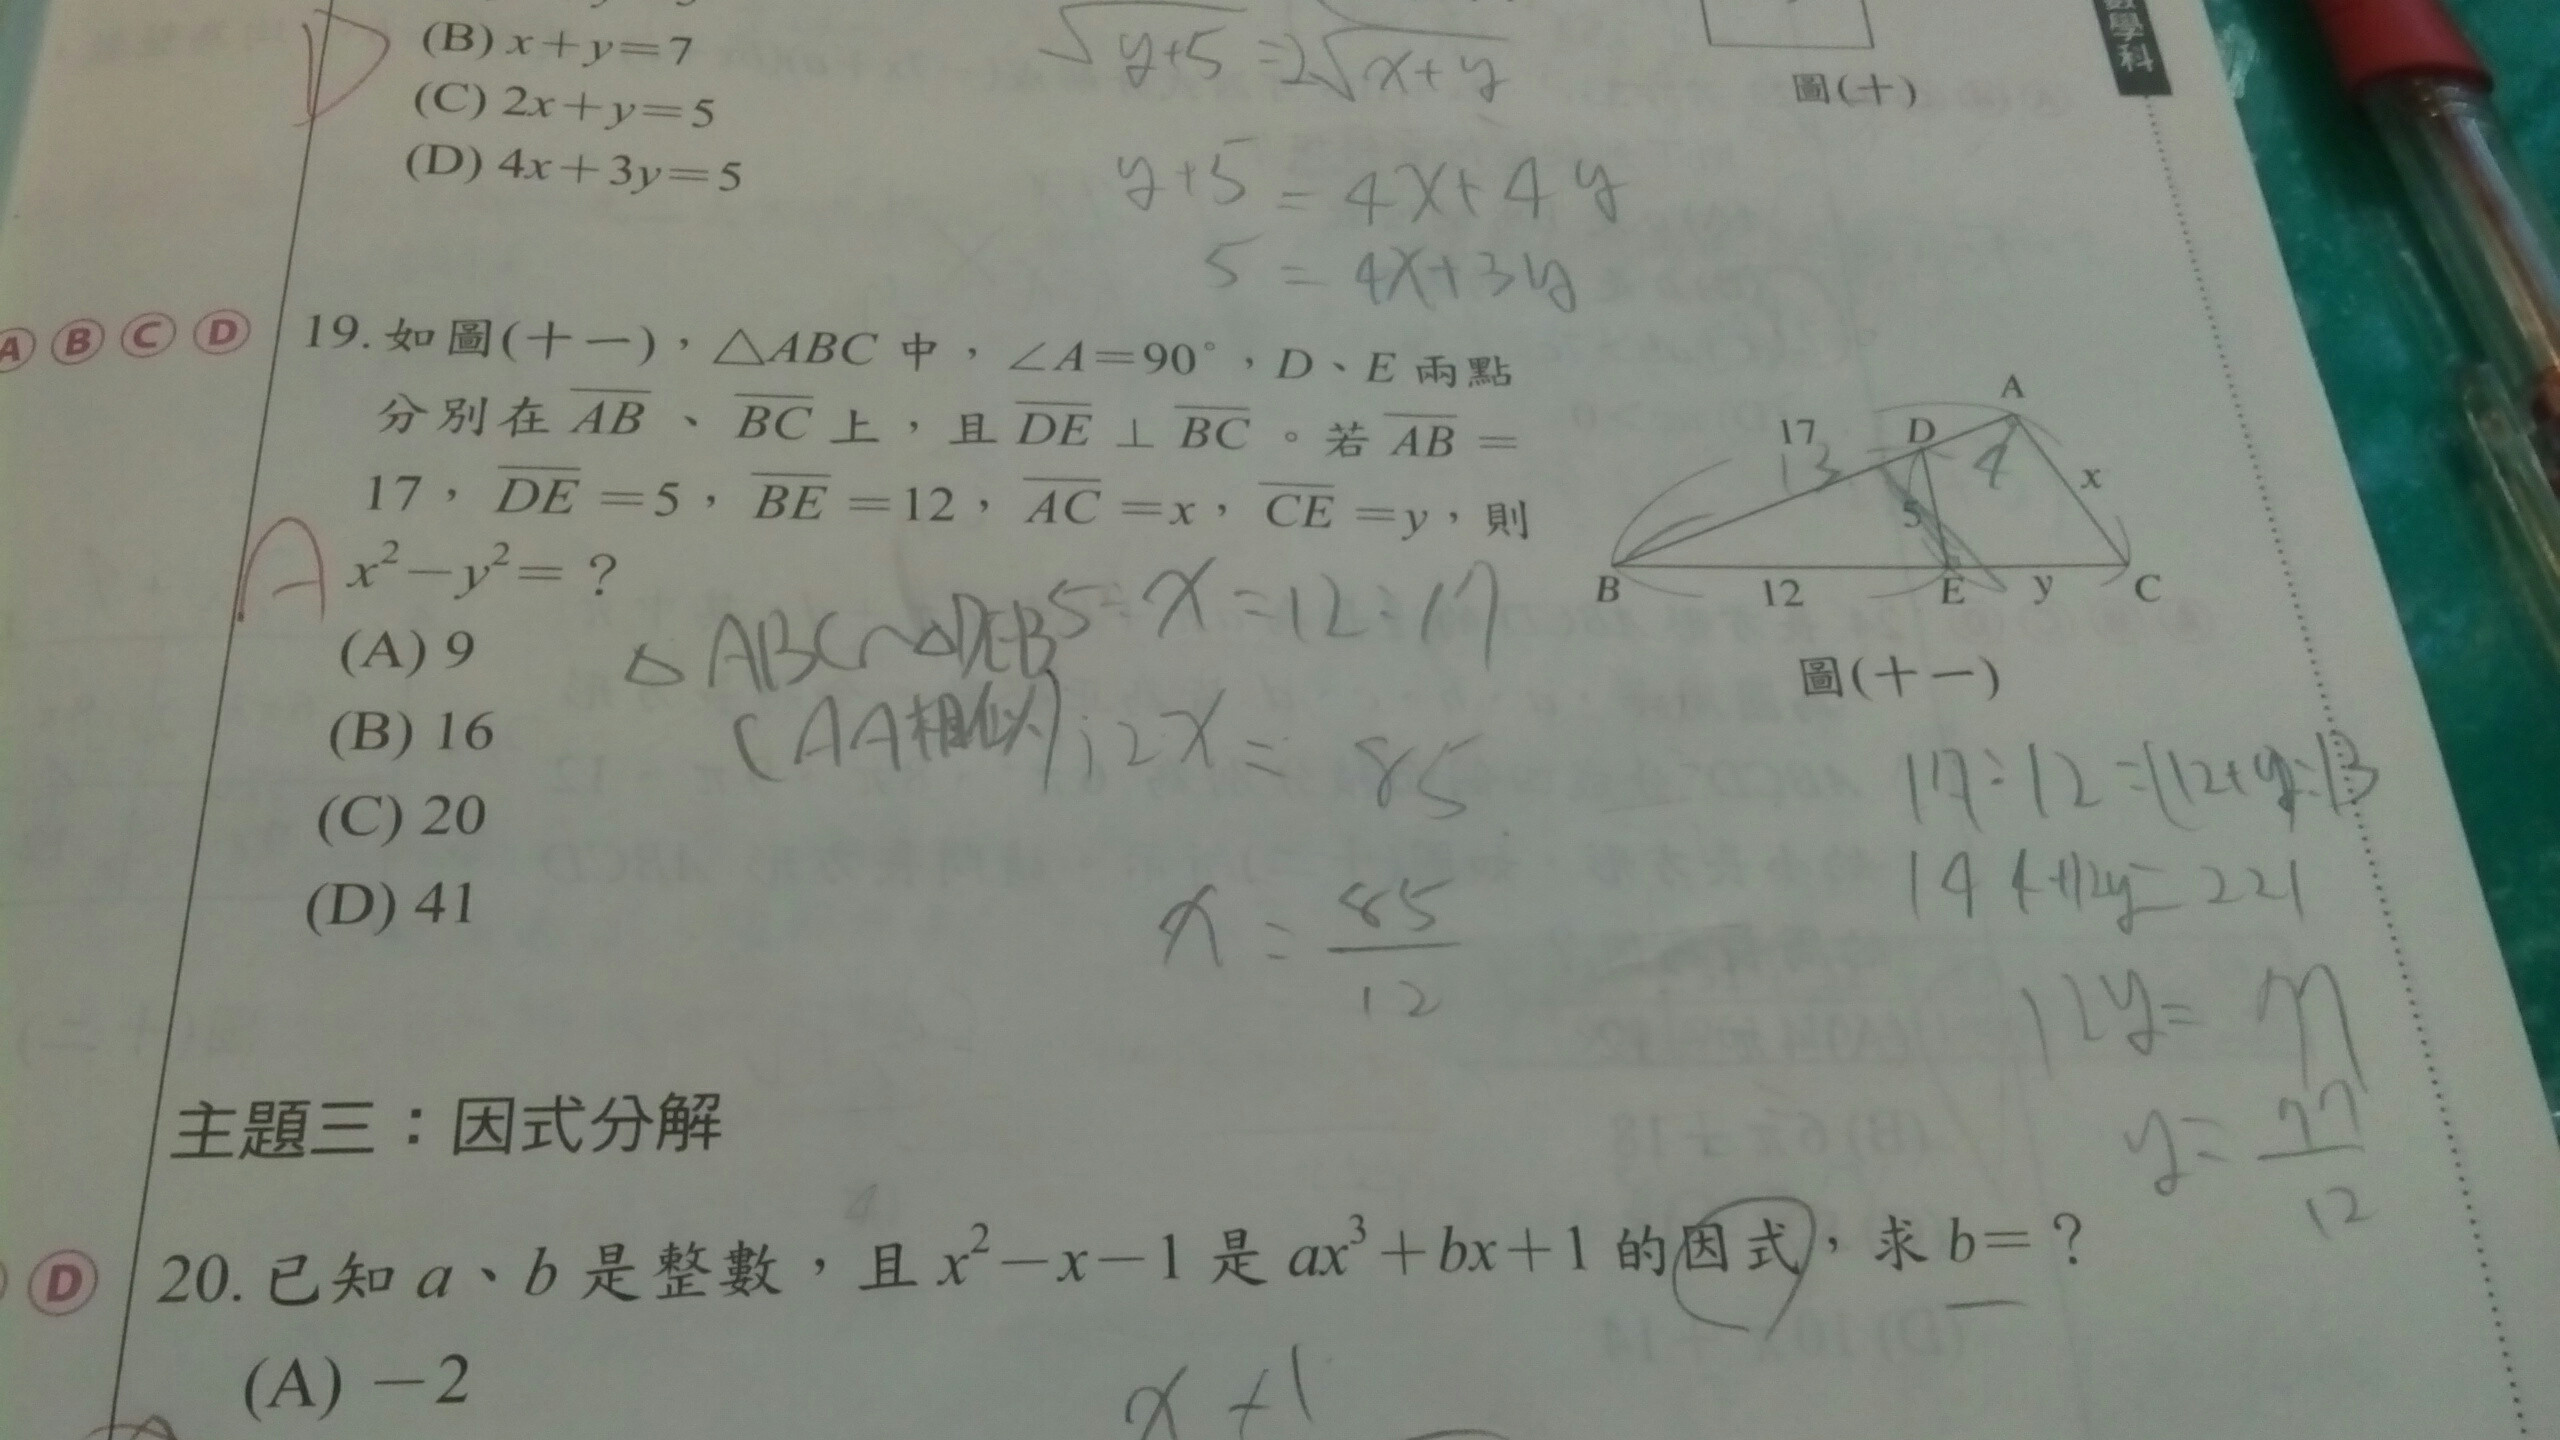 (B) x+y=7
(C) 2x+y=5
(D) 4x+3y=5
√y+5 =2√x+y
y+5 = 4x+4y
5 = 4x+3y
圖(十)
學科
A B C D
19. 如圖(十一)，△ABC 中，∠A=90°，D、E 兩點
分別在 AB、BC 上，且 DE ⊥ BC。若 AB =
17，DE =5，BE =12，AC =x，CE =y，則
x²−y²= ?
A
(A) 9
(B) 16
(C) 20
(D) 41
△ABC~△DEB
(AA相似)
5:x=12:17
12x = 85
x = 85/12
A
17
13
D
4
x
5
B
12
E
y
C
圖(十一)
17:12=(12+y):13
144+12y=221
12y= 77
y= 77/12
主題三：因式分解
D
20. 已知 a、b 是整數，且 x²−x−1 是 ax³+bx+1 的因式，求 b= ?
(A) −2
x +1